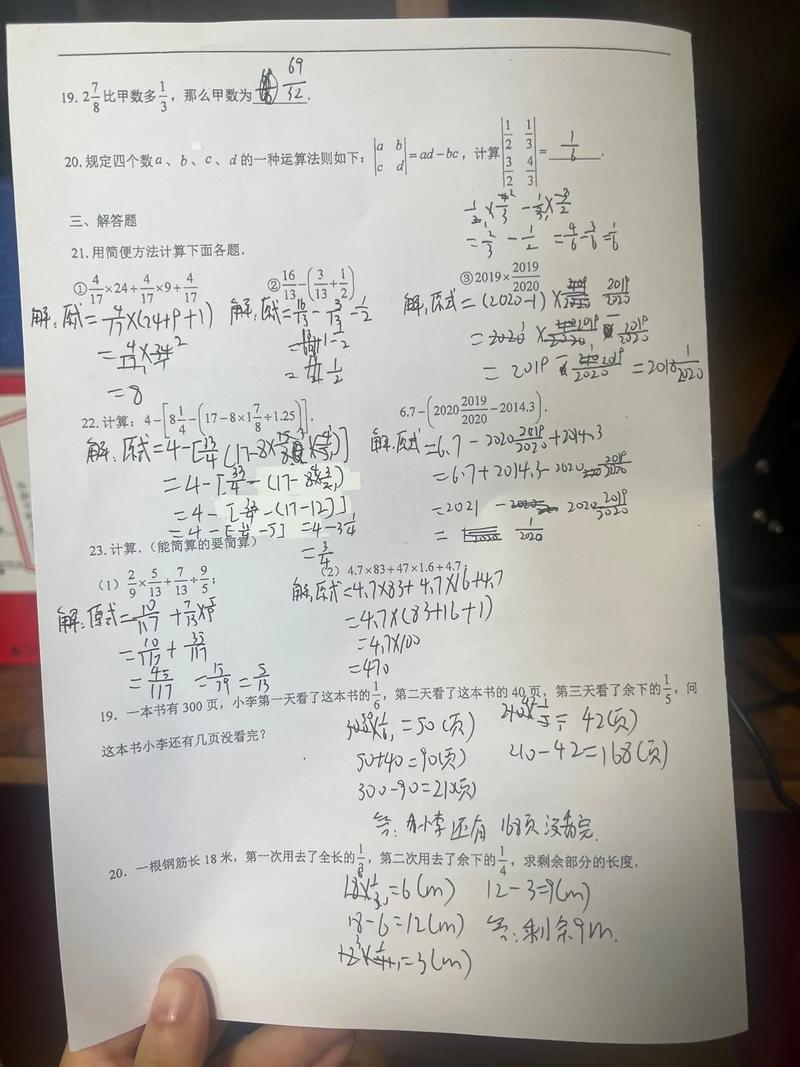 19. 2 7/8 比甲数多 1/3，那么甲数为 69/32 .
20. 规定四个数 a、b、c、d 的一种运算法则如下：|a b; c d| = ad−bc，计算 |1/2 1/3; 3/2 4/3| = 1/6 .
1/2 × 4/3 − 1/3 × 3/2
= 2/3 − 1/2 = 4/6 − 3/6 = 1/6
三、解答题
21. 用简便方法计算下面各题.
① 4/17 ×24+ 4/17 ×9+ 4/17
解：原式= 4/17 ×(24+9+1)
= 4/17 × 34
= 8
② 16/13 −(3/13 + 1/2)
解：原式= 16/13 − 3/13 − 1/2
= 1 − 1/2
= 1/2
③ 2019× 2019/2020
解：原式=(2020−1)× 2019/2020
= 2020 × 2019/2020 − 2019/2020
= 2019 − 2019/2020 = 2018 1/2020
22. 计算：4−[8 1/4 −(17−8×1 7/8 ÷1.25)].
解：原式=4−[33/4 (17−8× 15/8 × 4/5)]
=4−[33/4 −(17−
=4−[33/4 −(17−12)]
=4−[33/4 −5] =4−3 1/4
= 3/4
6.7−(2020 2019/2020 −2014.3).
解：原式=6.7−2020 2019/2020 +2014.3
=6.7+2014.3−2020 2019/2020
=2021 − 2020 2019/2020
= 1/2020
23. 计算．（能简算的要简算）
（1） 2/9 × 5/13 + 7/13 ÷ 9/5；
解：原式= 10/117 + 7/13 × 5/9
= 10/117 + 35/117
= 45/117 = 15/39 = 5/13
（2）4.7×83+47×1.6+4.7.
解：原式=4.7×83+4.7×16+4.7
=4.7×(83+16+1)
=4.7×100
=470
19. 一本书有 300 页，小李第一天看了这本书的 1/6，第二天看了这本书的 40 页，第三天看了余下的 1/5，问
这本书小李还有几页没看完？
300× 1/6 =50(页)
50+40=90(页)
300−90=210(页)
210× 1/5 = 42(页)
210−42=168(页)
答：小李还有168页没看完.
20. 一根钢筋长 18 米，第一次用去了全长的 1/3，第二次用去了余下的 1/4，求剩余部分的长度.
18× 1/3 =6(m)
18−6=12(m)
12× 1/4 =3(m)
12−3=9(m)
答：剩余9m.